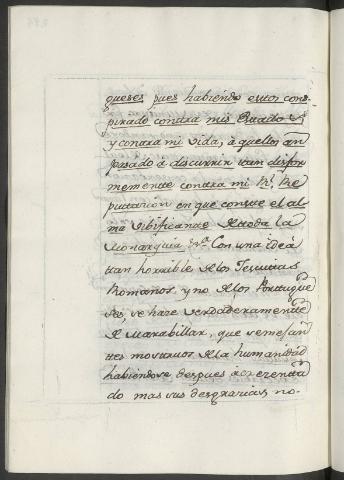 gueses pues habiendo estos cons-
pirado contra mis Estados
y contra mi vida, à quellos an
pasado à discurrir tan disfor
memente contra mi Rl. Re
putacion en que consiste el al
ma vibificante de toda la
Monarquia Con una idea
tan horrible de los Jesuitas
Romanos, y no de los Portugue
ses se haze verdaderamente
de Marabillar, que semejan
tes mostruos de la humanidad
habiendose despues acrezenta
do mas sus desgracias, no-